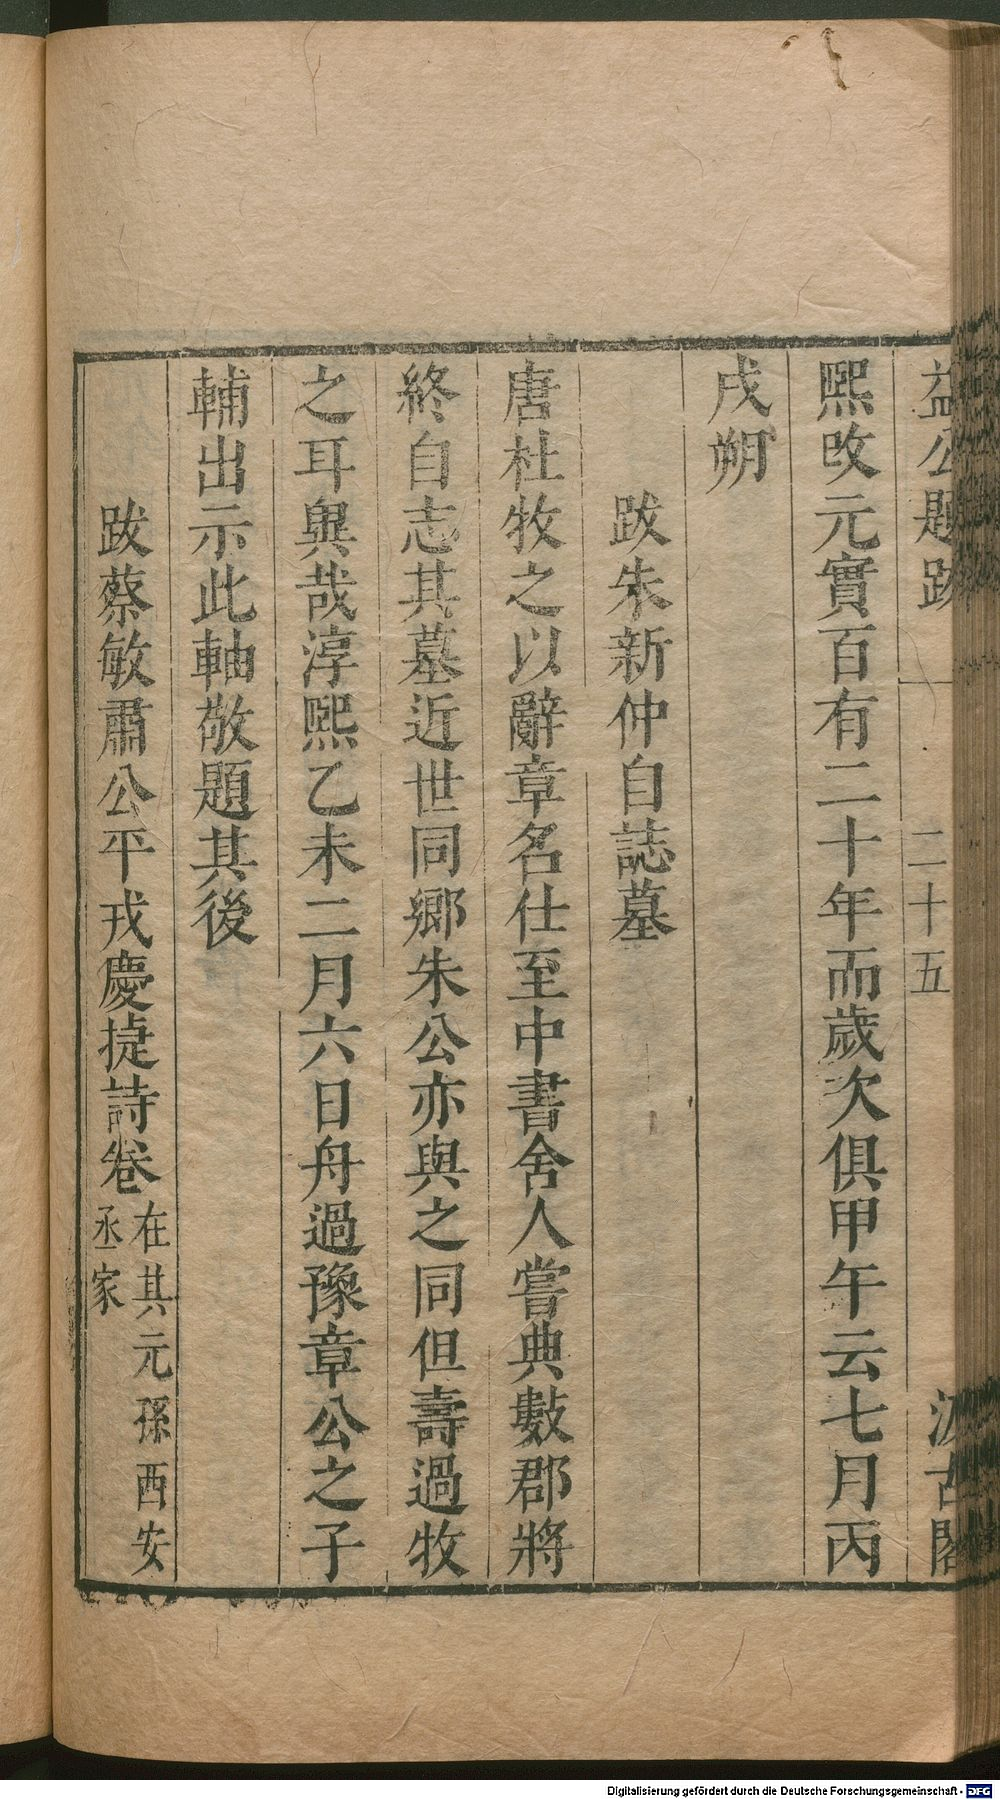 益公題跋 二十五 汲古閣
熙改元實百有二十年而歲次俱甲午云七月丙
戌朔
跋朱新仲自誌墓
唐杜牧之以辭章名仕至中書舍人嘗典數郡將
終自志其墓近世同鄉朱公亦與之同但壽過牧
之耳異哉淳熙乙未二月六日舟過豫章公之子
輔出示此軸敬題其後
跋蔡敏肅公平戎慶捷詩卷 在其元孫西安
丞家
Digitalisierung gefördert durch die Deutsche Forschungsgemeinschaft - DFG